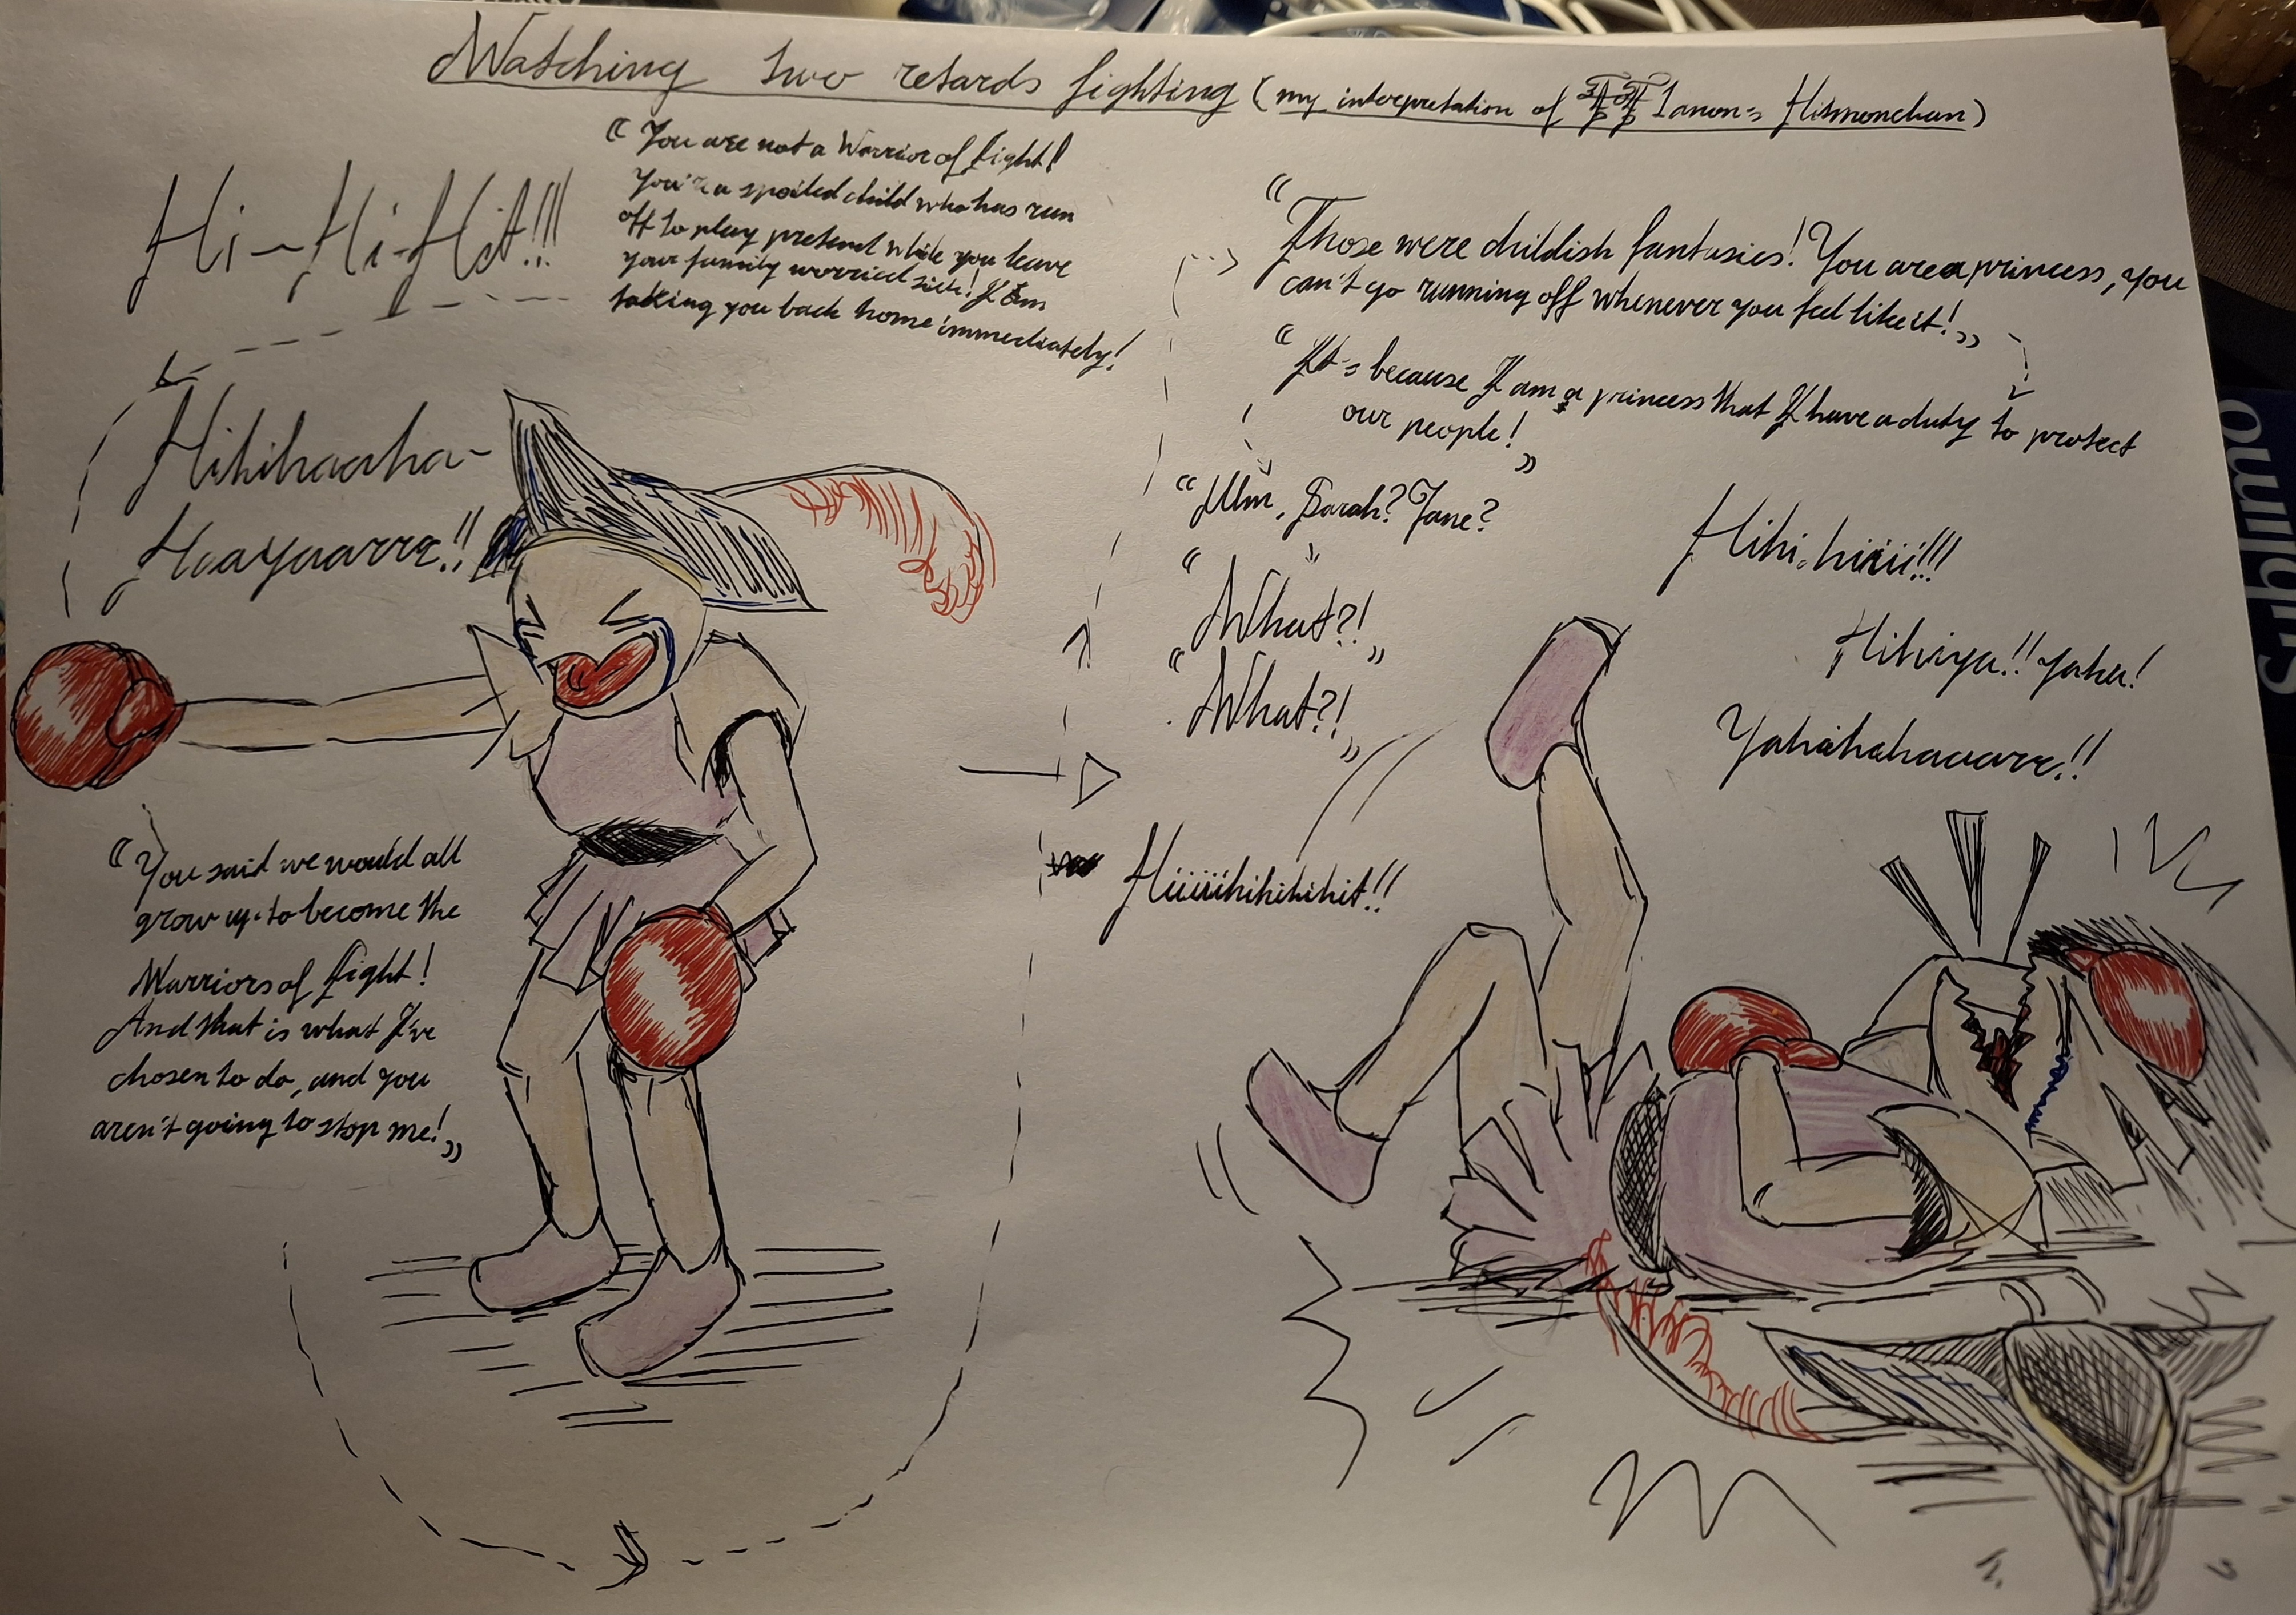 Watching two retards fighting (my interpretation of 1anon's Hitmonchan)
Hi-Hi-Hit!!!
"You are not a Warrior of Light!
You're a spoiled child who has run
off to play pretend while you leave
your family worried sick! I am
taking you back home immediately!
Hihihaaha-
Haayaarrr!!
"You said we would all
grow up to become the
Warriors of Light!
And that is what I've
chosen to do, and you
aren't going to stop me!"
"Those were childish fantasies! You are a princess, you
can't go running off whenever you feel like it!"
"It's because I am a princess that I have a duty to protect
our people!"
"Um, Sarah? Jane?"
"What?!"
"What?!"
Hihi,hiiii!!!
Hihiya!! Yaha!
Yahahahaaarr!!
Hiiiiihihihihit!!
Sublimo